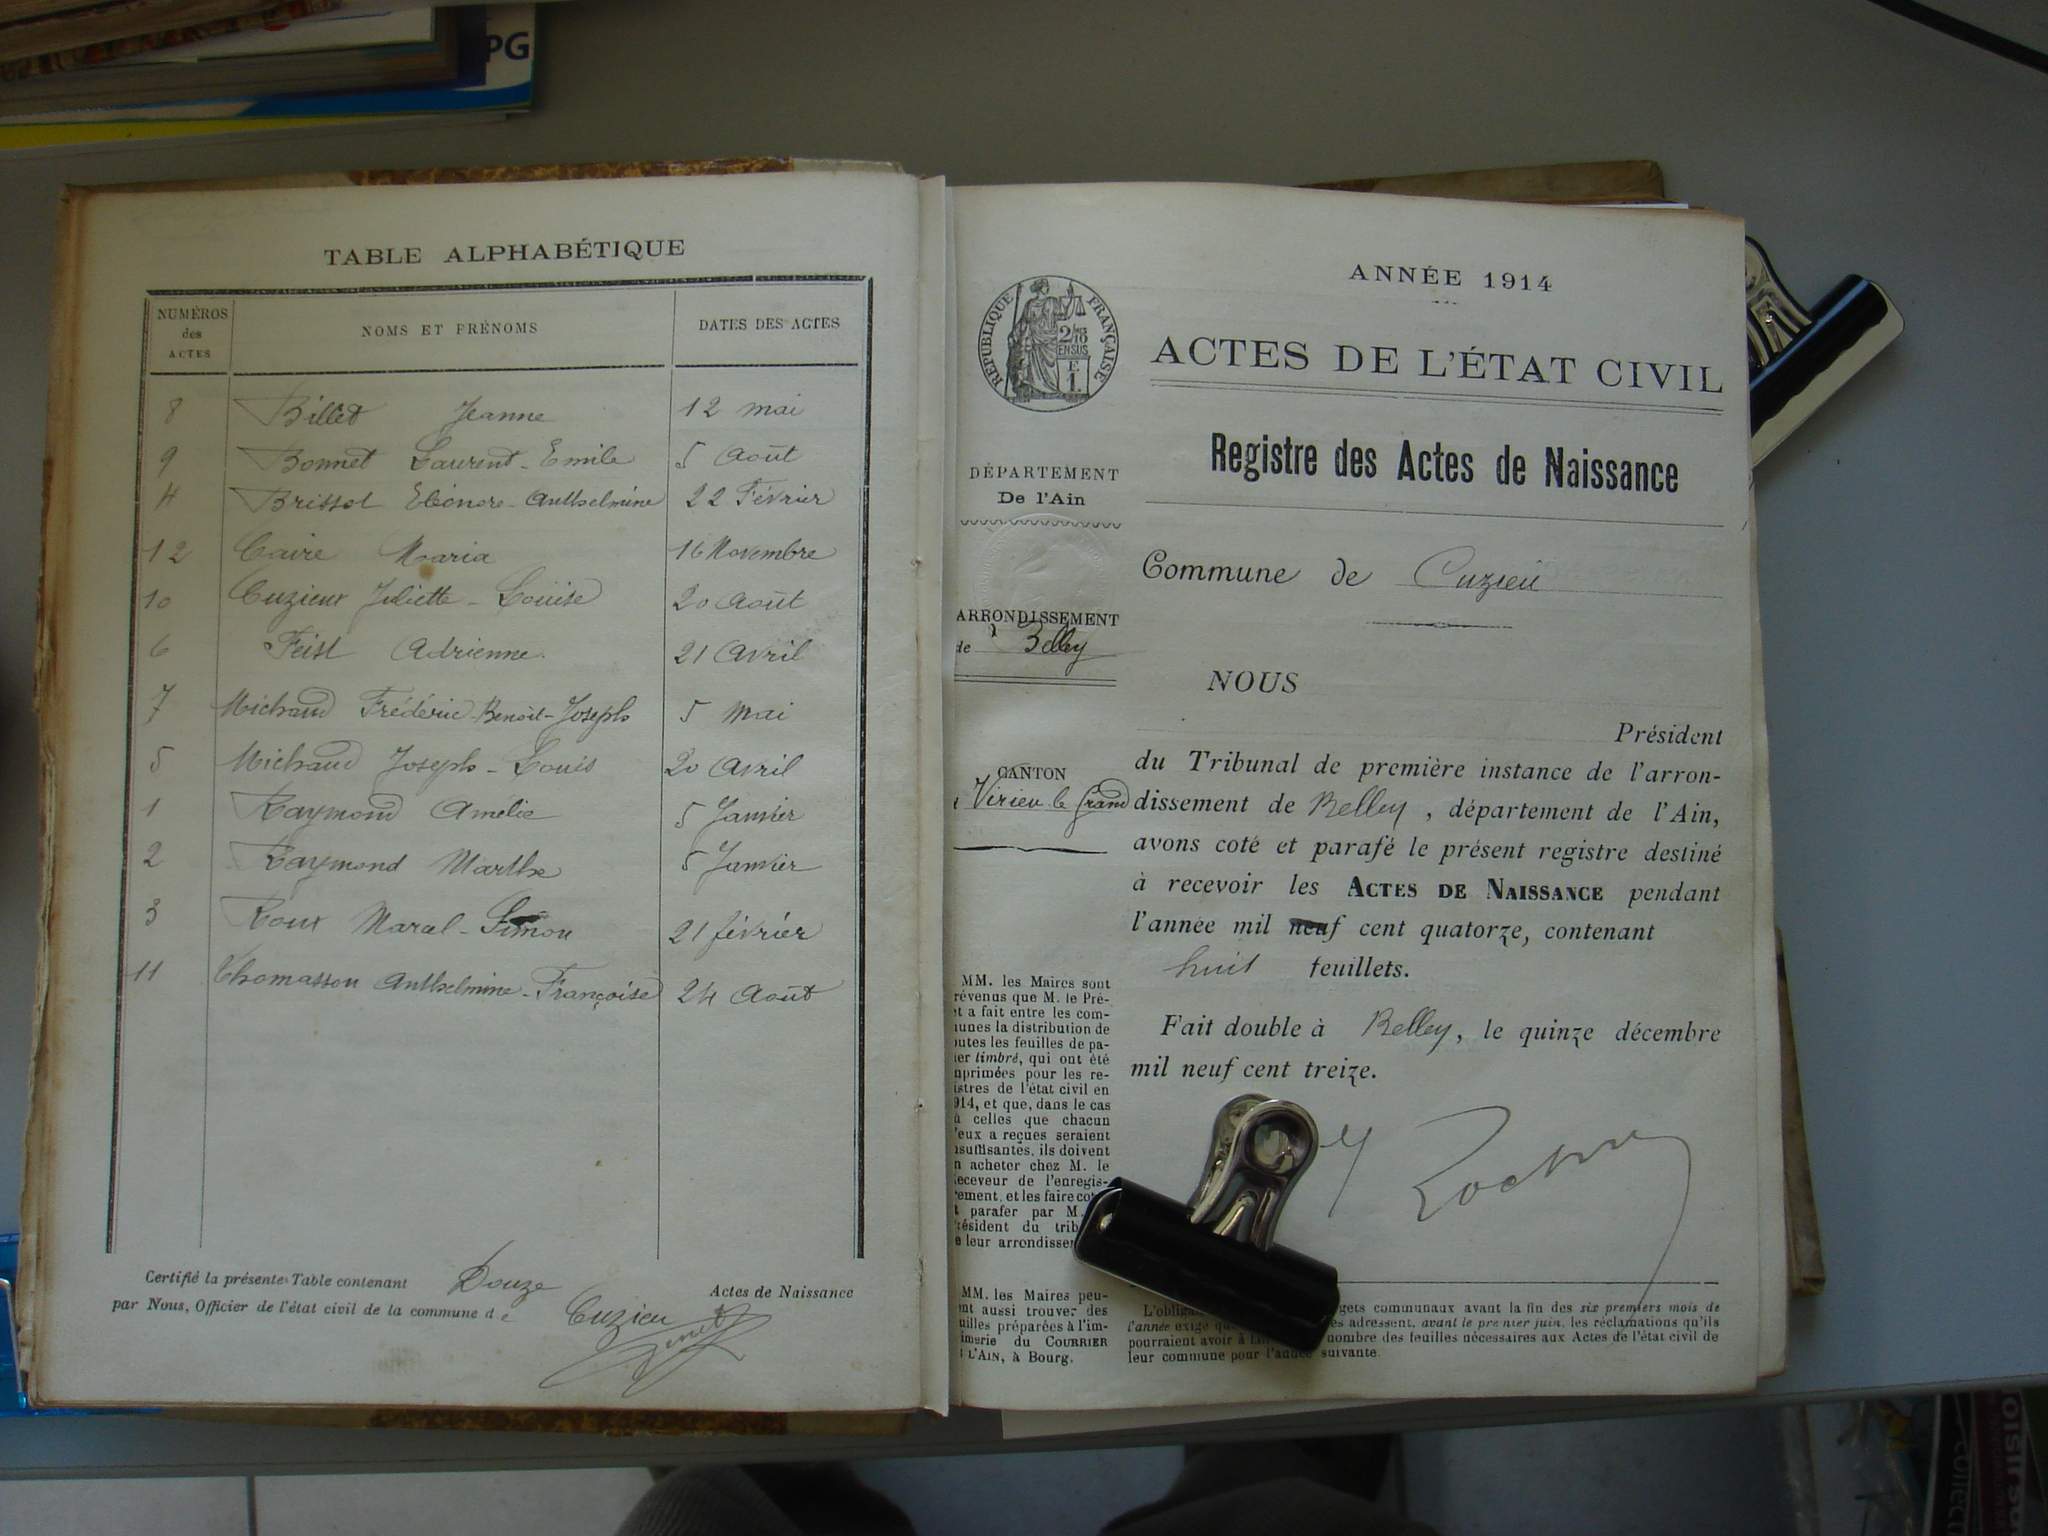 PG
TABLE ALPHABÉTIQUE
NUMÉROS des ACTES NOMS ET PRÉNOMS DATES DES ACTES
8 Billet Jeanne 12 mai
9 Bonnet Laurent-Emile 5 Août
4 Brissot Eléonore-Anthelmine 22 Février
12 Caire Maria 16 Novembre
10 Cuzieux Juliette-Louise 20 Août
6 Feist Adrienne 21 Avril
7 Michaud Frédéric-Benoit-Joseph 5 Mai
5 Michaud Joseph-Louis 20 Avril
1 Raymond Amélie 5 Janvier
2 Raymond Marthe 5 Janvier
3 Roux Marcel-Simon 21 février
11 Thomasson Anthelmine-Françoise 24 Août
Certifié la présente Table contenant Douze Actes de Naissance
par Nous, Officier de l'état civil de la commune de Cuzieu
RÉPUBLIQUE FRANÇAISE
2/10
EN SUS
E
1.
DÉPARTEMENT
De l'Ain
ARRONDISSEMENT
de Belley
CANTON
Virieu le Grand
MM. les Maires sont
révenus que M. le Pré-
t a fait entre les com-
unes la distribution de
outes les feuilles de pa-
ier timbré, qui ont été
mprimées pour les re-
istres de l'état civil en
914, et que, dans le cas
ù celles que chacun
'eux a reçues seraient
nsuffisantes, ils doivent
n acheter chez M. le
eceveur de l'enregis-
ement, et les faire cot
t parafer par M.
résident du trib
e leur arrondisse
MM. les Maires peu-
ent aussi trouver des
uilles préparées à l'im-
imerie du COURRIER
L'AIN, à Bourg.
ANNÉE 1914
ACTES DE L'ÉTAT CIVIL
Registre des Actes de Naissance
Commune de Cuzieu
NOUS
Président
du Tribunal de première instance de l'arron-
dissement de Belley, département de l'Ain,
avons coté et parafé le présent registre destiné
à recevoir les ACTES DE NAISSANCE pendant
l'année mil neuf cent quatorze, contenant
huit feuillets.
Fait double à Belley, le quinze décembre
mil neuf cent treize.
L'obli gets communaux avant la fin des six premiers mois de
l'année exige qu es adressent, avant le premier juin, les réclamations qu'ils
pourraient avoir à nombre des feuilles nécessaires aux Actes de l'état civil de
leur commune pour l'année suivante.